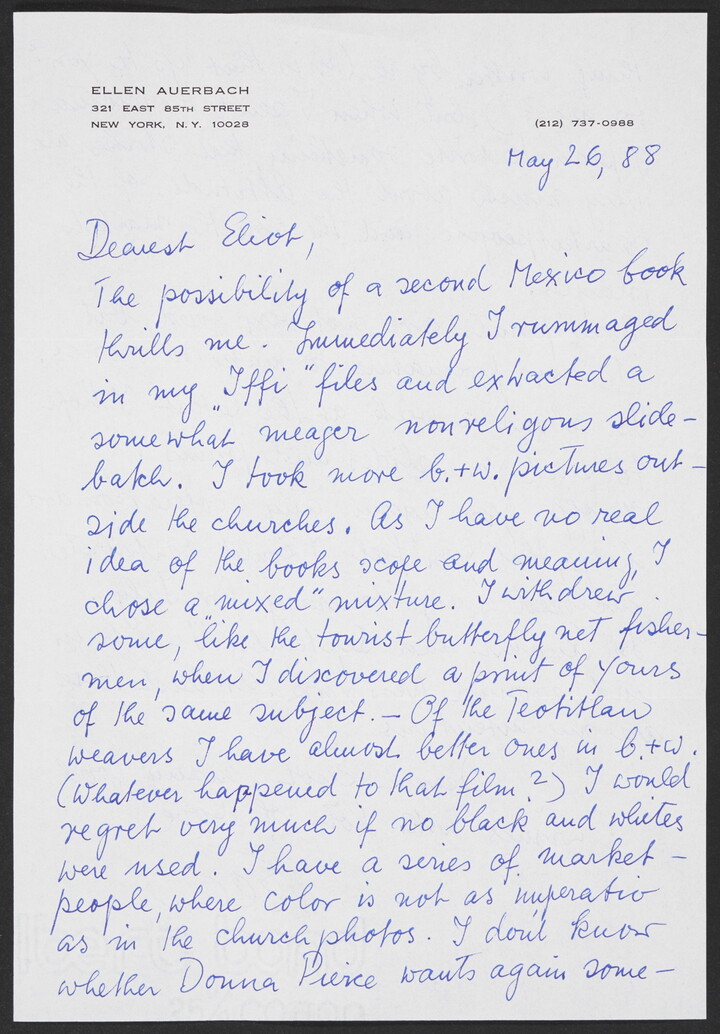 ELLEN AUERBACH
321 EAST 85TH STREET
NEW YORK, N.Y. 10028
(212) 737-0988
May 26, 88
Dearest Eliot,
The possibility of a second Mexico book
thrills me. Immediately I rummaged
in my "Iffi" files and extracted a
somewhat meager nonreligous slide-
batch. I took more b.+w. pictures out-
side the churches. As I have no real
idea of the books scope and meaning, I
chose a "mixed" mixture. I withdrew
some, like the tourist butterfly net fisher-
men, when I discovered a print of yours
of the same subject. — Of the Teotitlan
weavers I have almost better ones in b.+w.
(Whatever happened to that film?) I would
regret very much if no black and whites
were used. I have a series of market-
people, where color is not as imperativ
as in the church photos. I don't know
whether Donna Pierce wants again some-